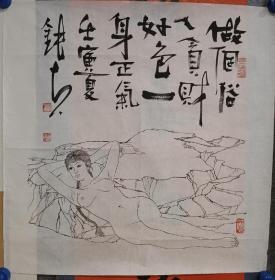 做個俗
人貪財
好色一
身正氣
壬寅夏